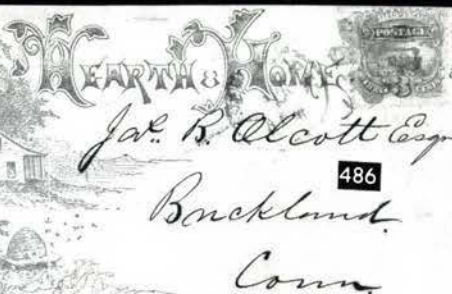 HEARTH & HOME
POSTAGE
Jas. B. Olcott Esqr
486
Buckland.
Conn.